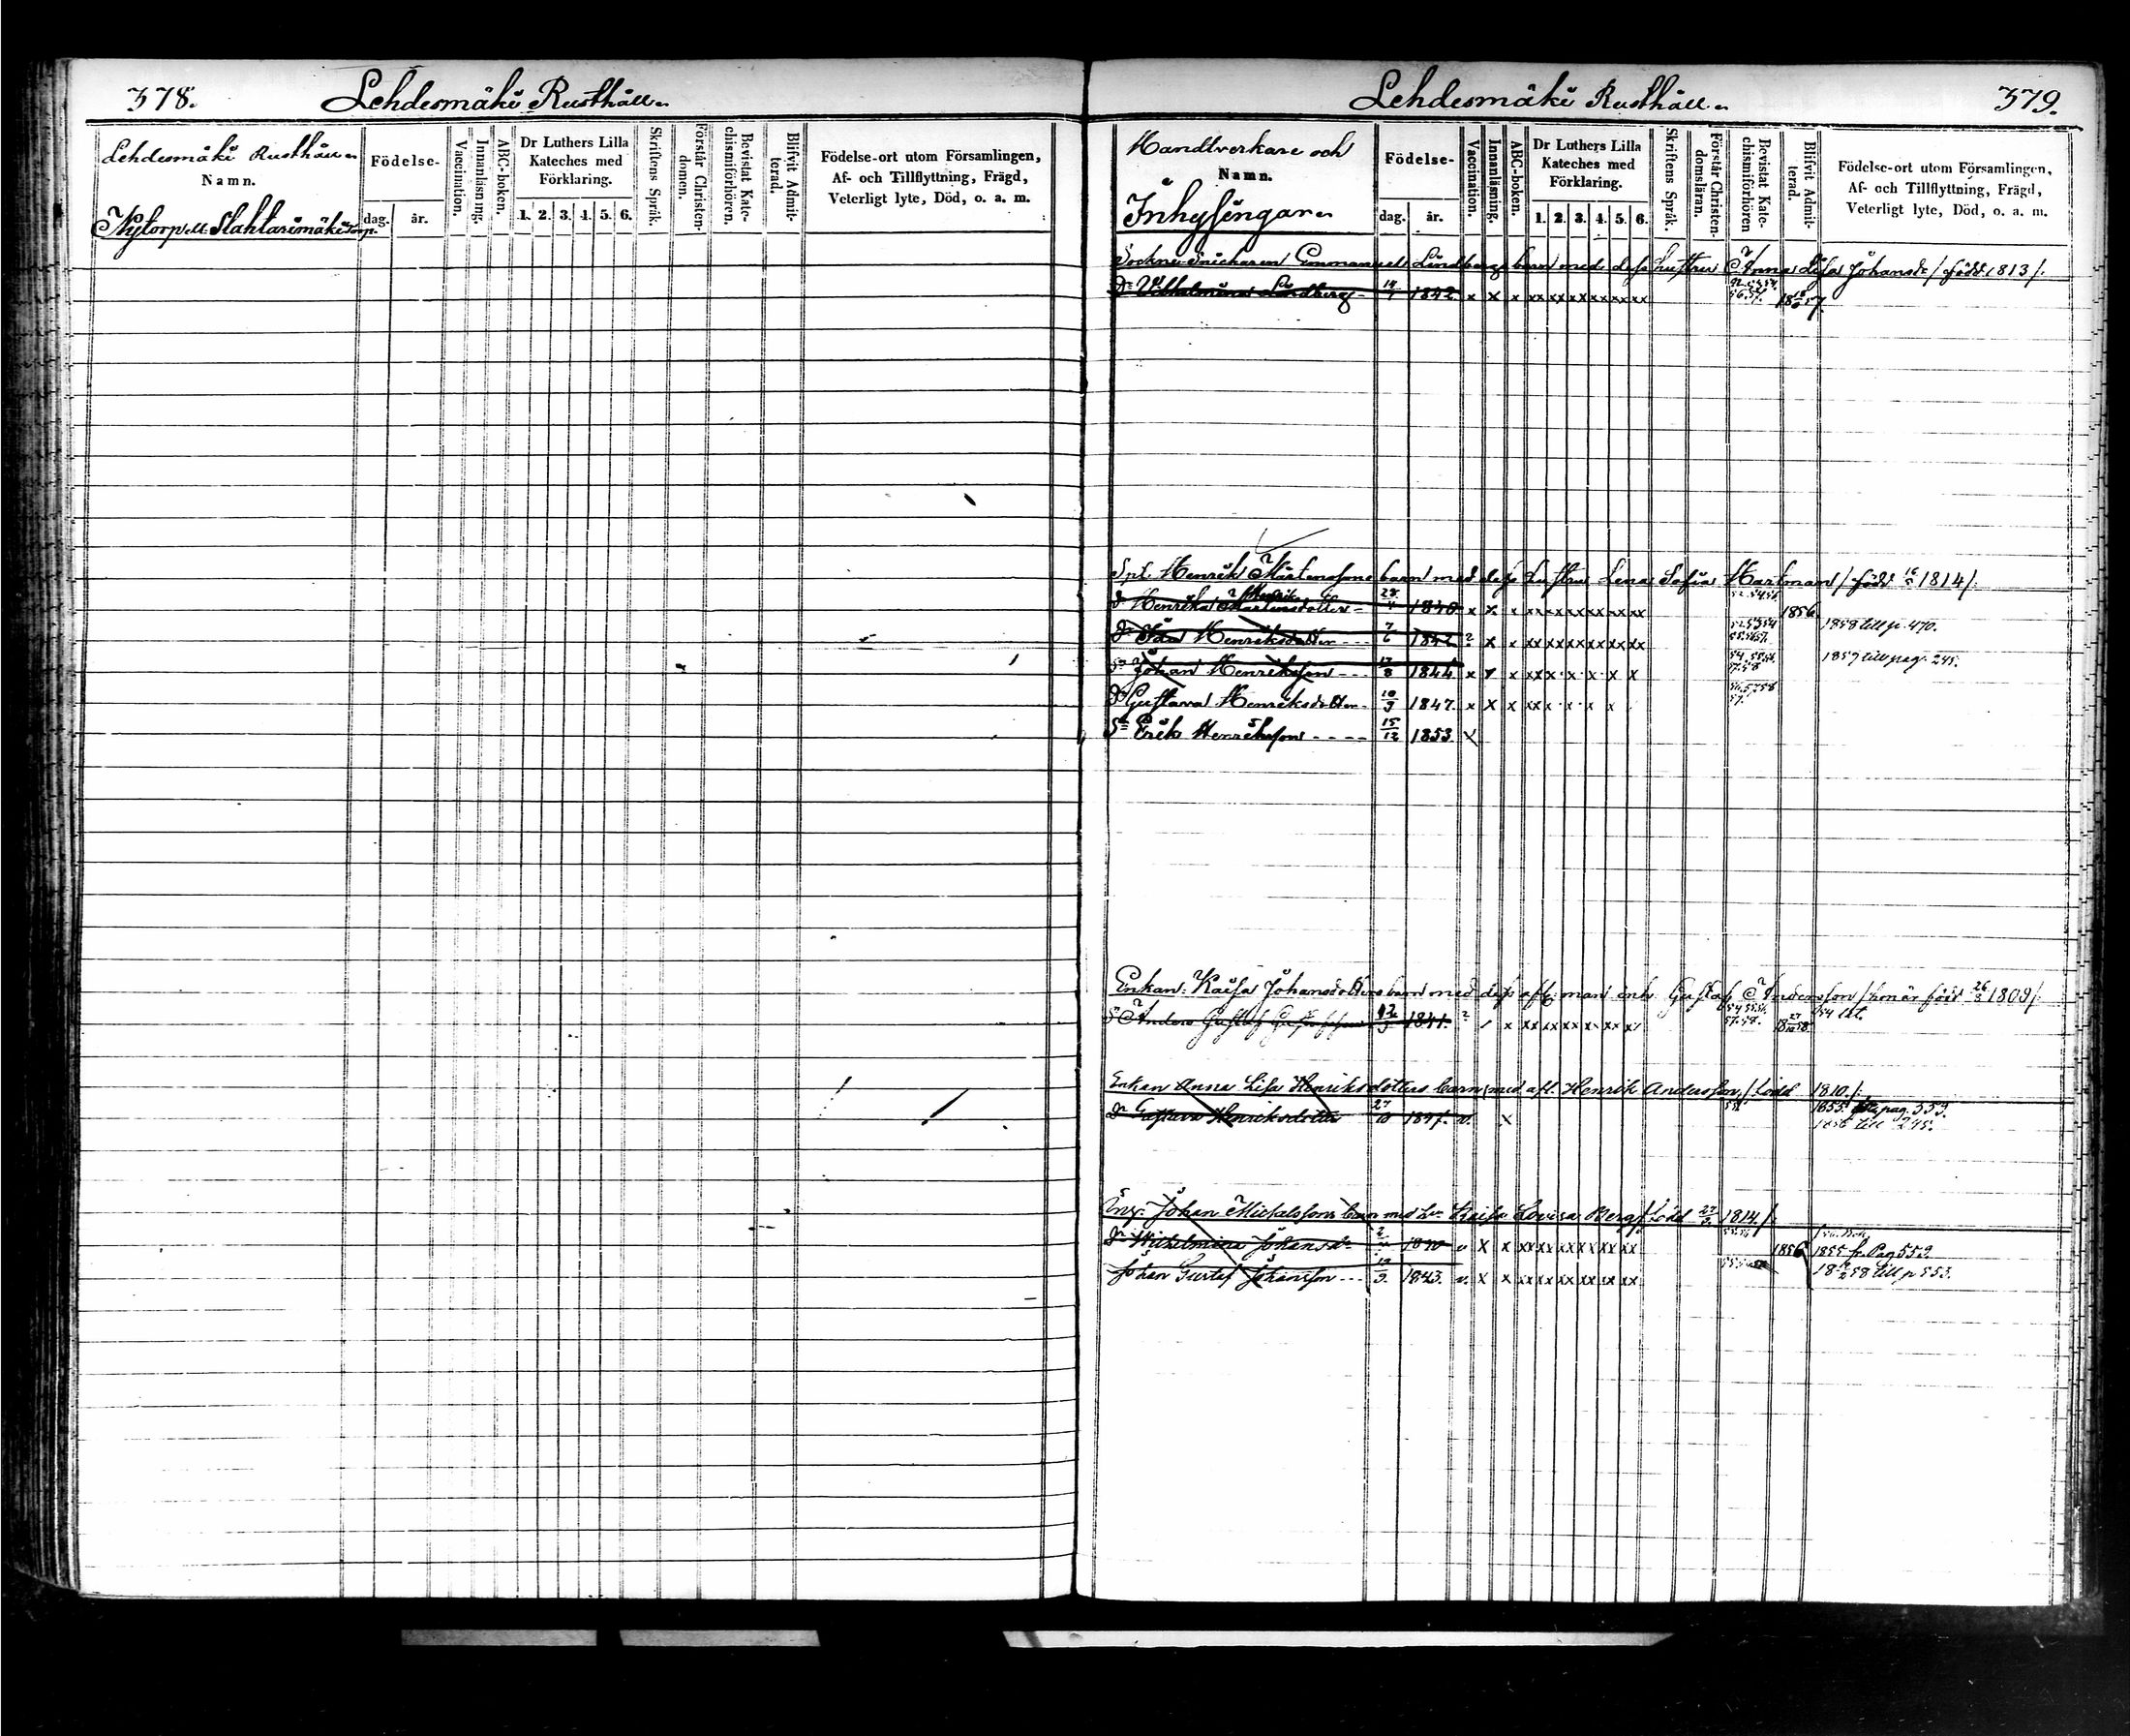 378. Lehdesmäki Rusthåll
Lehdesmäki Rusthåll
Namn.
Födelse-
dag. år.
Vaccination.
Innanläsning.
ABC-boken.
Dr Luthers Lilla
Kateches med
Förklaring.
1. 2. 3. 4. 5. 6.
Skriftens Språk.
Förstår Christen-
domen.
Bevistat Kate-
chismiförhören.
Blifvit Admit-
terad.
Födelse-ort utom Församlingen,
Af- och Tillflyttning, Frägd,
Veterligt lyte, Död, o. a. m.
Nytorp Slahtarimäki torp.
Lehdesmäki Rusthåll 379.
Handtverkare och
Namn.
Inhysingar
Födelse-
dag. år.
Vaccination.
Innanläsning.
ABC-boken.
Dr Luthers Lilla
Kateches med
Förklaring.
1. 2. 3. 4. 5. 6.
Skriftens Språk.
Förstår Christen-
domsläran.
Bevistat Kate-
chismiförhören
Blifvit Admit-
terad.
Födelse-ort utom Församlingen,
Af- och Tillflyttning, Frägd,
Veterligt lyte, Död, o. a. m.
Sockne Snickaren Emmanuel Lindbergs barn med dess hustru Anna Lisa Johansdr / född 1813 /.
Dr Vilhelmina Lindberg 14/1 1842 x x x xx xx xx xx xx xx
Spl. Henrik Mårtenssons barn med dess hustru Lena Sofia Hartman / född 16 1814 /.
dr Henrika Henriks 1840 x x x xx xx xx xx xx xx 1856
dr Henriksdotter 7/6 1842 ? x x xx xx xx xx xx xx 1858 till p. 470.
Sn Johan Henriksson 1844 x x x 1859 till pag. 245.
Dr Gustava Henriksdotter 10/9 1847 x x x
Sn Erik Henriksson 15/12 1853 x
Enkan Kaisa Johansdotters barn med dess afl. man inh. Gustaf Andersson / hon är född 26/3 1809 /.
Sn Anders Gustaf Gustafsson 1841. ?
Enkan Anna Lisa Henriksdotters barn med afl. Henrik Andersson, / född 1810. /:
dr Gustava Henriksdotter 27/10 1847. v. x 1855 pag. 559.
1856 till 245.
Johan Michelssons barn med hu Kaisa Lovisa Berg / född 27 1814. /
dr Wilhelmina Johansdr 1840 v x x xx xx xx xx xx xx 1856 1855 fr. Pag 559.
Johan Gustaf Johansson 1843. v. x x xx xx xx xx xx xx 58 till p 553.